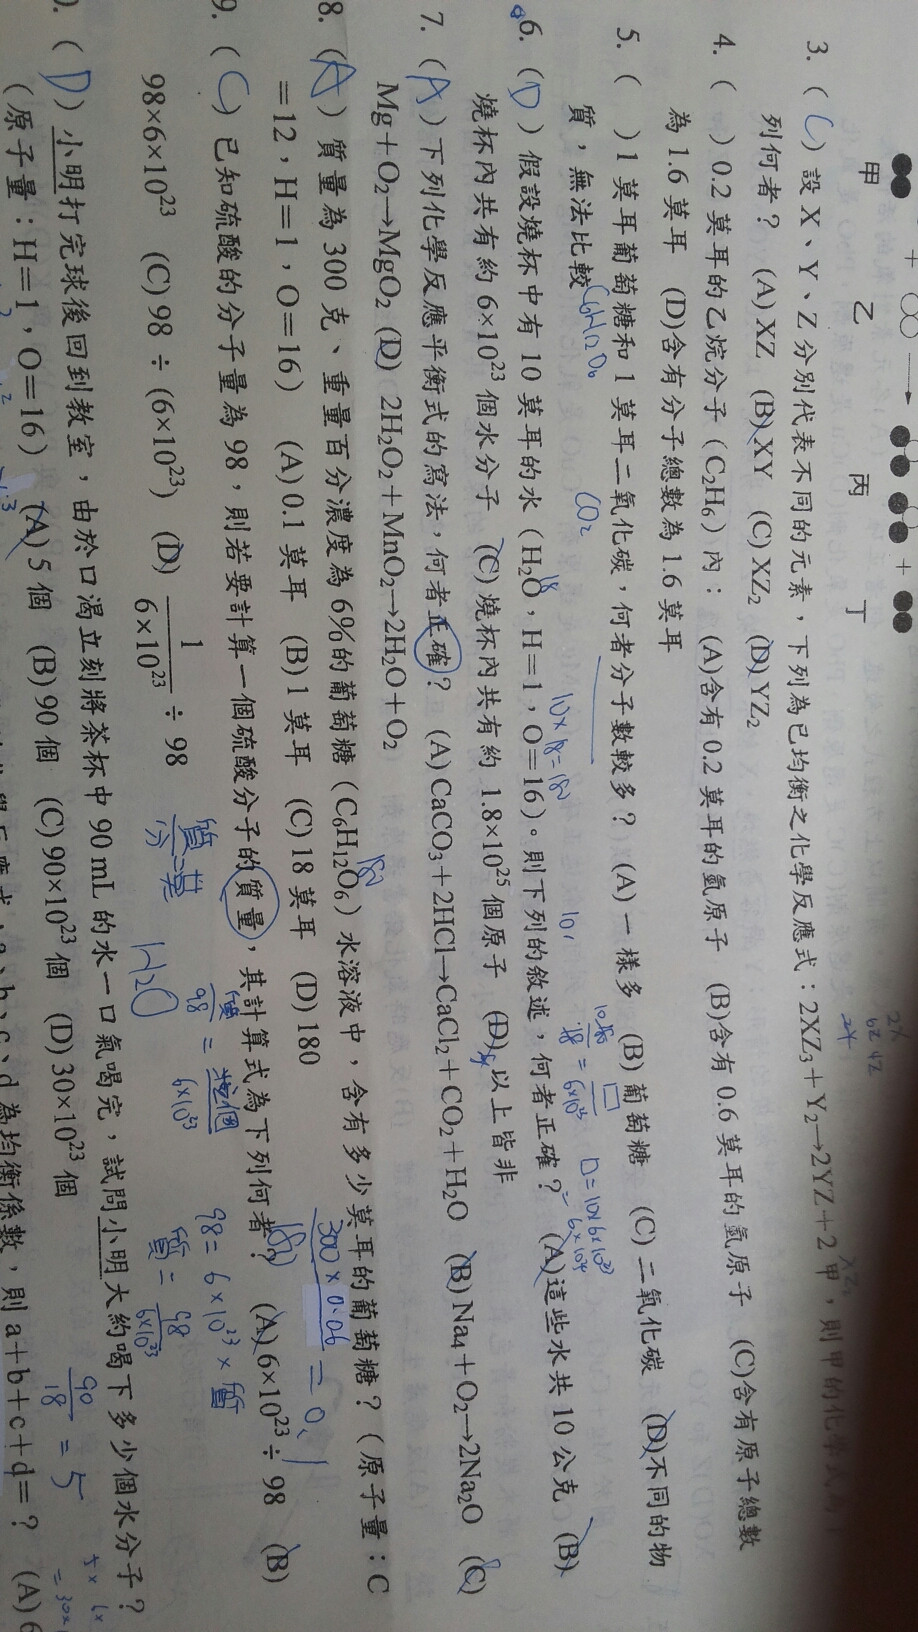 甲 + 乙 → 丙 + 丁
3. ( C ) 設 X、Y、Z 分別代表不同的元素，下列為已均衡之化學反應式：2XZ₃＋Y₂→2YZ＋2 甲，則甲的化學式為下
列何者？ (A) XZ (B) XY (C) XZ₂ (D) YZ₂
4. ( ) 0.2 莫耳的乙烷分子（C₂H₆）內： (A)含有 0.2 莫耳的氫原子 (B)含有 0.6 莫耳的氫原子 (C)含有原子總數
為 1.6 莫耳 (D)含有分子總數為 1.6 莫耳
5. ( ) 1 莫耳葡萄糖和 1 莫耳二氧化碳，何者分子數較多？ (A) 一樣多 (B) 葡萄糖 (C) 二氧化碳 (D)不同的物
質，無法比較 C₆H₁₂O₆ CO₂
6. ( D ) 假設燒杯中有 10 莫耳的水（H₂O，H＝1，O＝16）。則下列的敘述，何者正確？ (A)這些水共 10 公克 (B)
燒杯內共有約 6×10²³ 個水分子 (C)燒杯內共有約 1.8×10²⁵ 個原子 (D)以上皆非
18
10×18=180
7. ( A ) 下列化學反應平衡式的寫法，何者正確？ (A) CaCO₃＋2HCl→CaCl₂＋CO₂＋H₂O (B) Na₄＋O₂→2Na₂O (C)
Mg＋O₂→MgO₂ (D) 2H₂O₂＋MnO₂→2H₂O＋O₂
8. ( A ) 質量為 300 克、重量百分濃度為 6%的葡萄糖（C₆H₁₂O₆）水溶液中，含有多少莫耳的葡萄糖？（原子量：C
＝12，H＝1，O＝16） (A) 0.1 莫耳 (B) 1 莫耳 (C) 18 莫耳 (D) 180
180
300×0.06/180 = 0.1
9. ( C ) 已知硫酸的分子量為 98，則若要計算一個硫酸分子的質量，其計算式為下列何者？ (A) 6×10²³÷98 (B)
98×6×10²³ (C) 98÷(6×10²³) (D) 1/6×10²³ ÷98
98=6×10²³×質
質=98/6×10²³
H₂O
( D ) 小明打完球後回到教室，由於口渴立刻將茶杯中 90 mL 的水一口氣喝完，試問小明大約喝下多少個水分子？
（原子量：H＝1，O＝16） (A) 5 個 (B) 90 個 (C) 90×10²³ 個 (D) 30×10²³ 個
90/18 = 5
a、b、c、d 為均衡係數，則 a＋b＋c＋d＝？ (A) 6